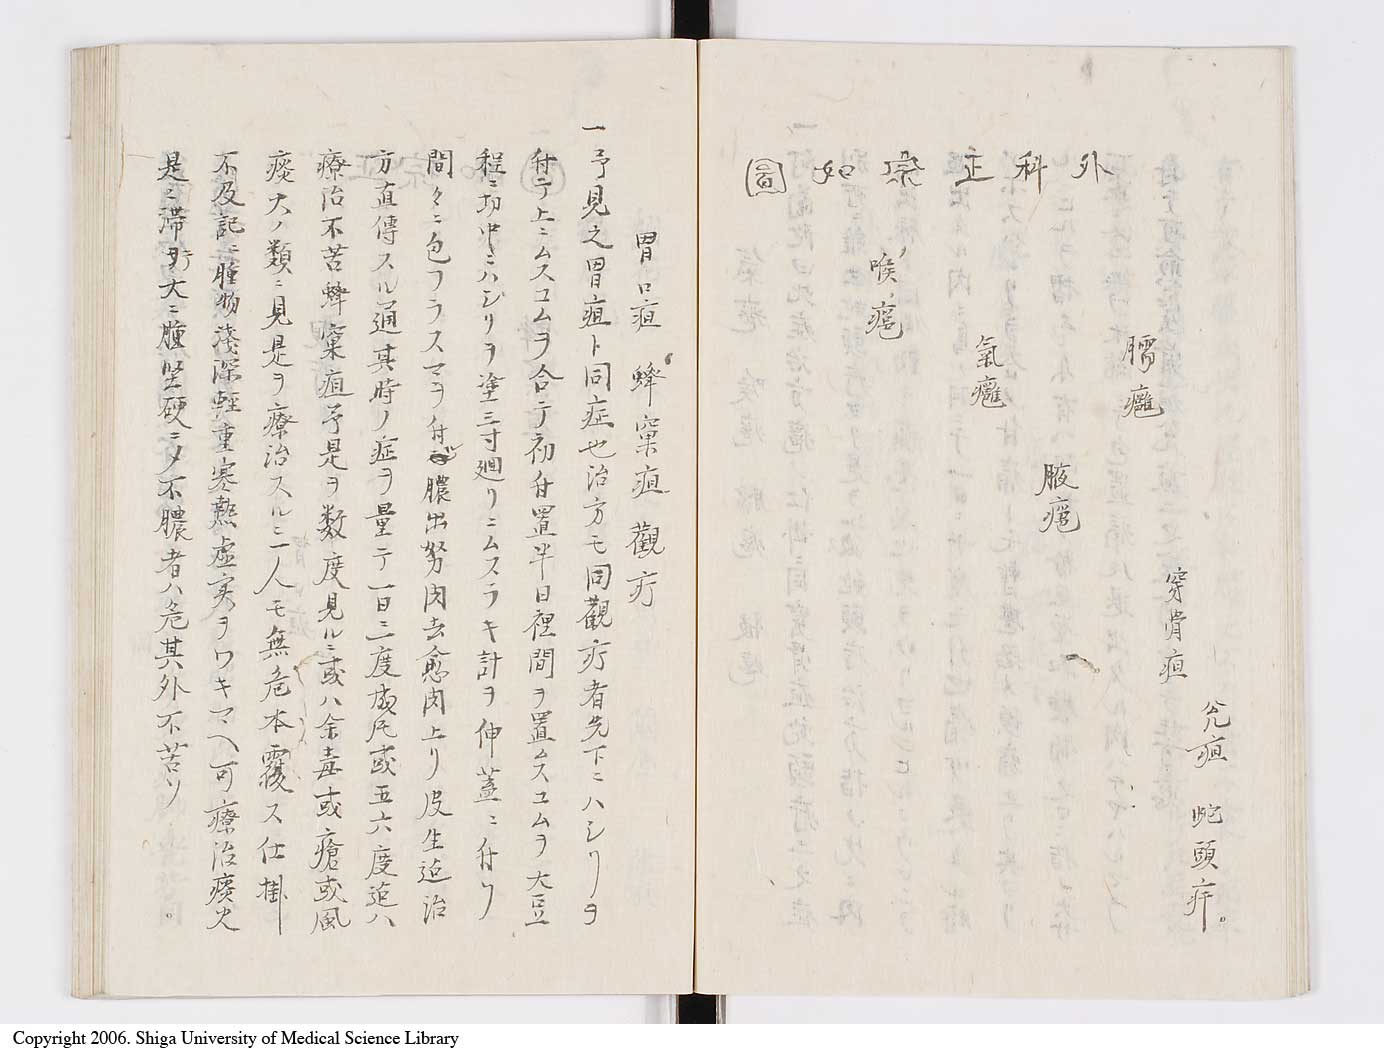 外科正宗如圖
喉瘡
氣癰
臑癰
腋瘡
穿骨疽
兊疽
蛇頭疔。
胃口疽 蜂窠疽 觀疔
一予見之胃疽ト同症也治方モ同觀疔者先下ニハシリヲ
付テ上ニムスコムヲ合テ初付置半日裡間ヲ置ムスコムヲ大豆
程ニ切中ニハシリヲ塗三寸廻リニムスラキ計ヲ伸蓋ニ付リ
間々ニ色フラスマヲ付膿出努肉去愈肉上リ皮生迄治
方直傳スル通其時ノ症ヲ量テ一日三度或ハ五六度迄ハ
療治不苦蜂窠疽予是ヲ数度見ルニ或ハ余毒或瘡或風
痰大ノ類ニ見是ヲ療治スルニ一人モ無危本覆ス仕掛
不及記ニ腫物淺深輕重寒熱虚実ヲワキマヘ可療治痰火
是ニ滞リ大ニ腫堅硬ニメ不膿者ハ危其外不苦ソ。
Copyright 2006. Shiga University of Medical Science Library